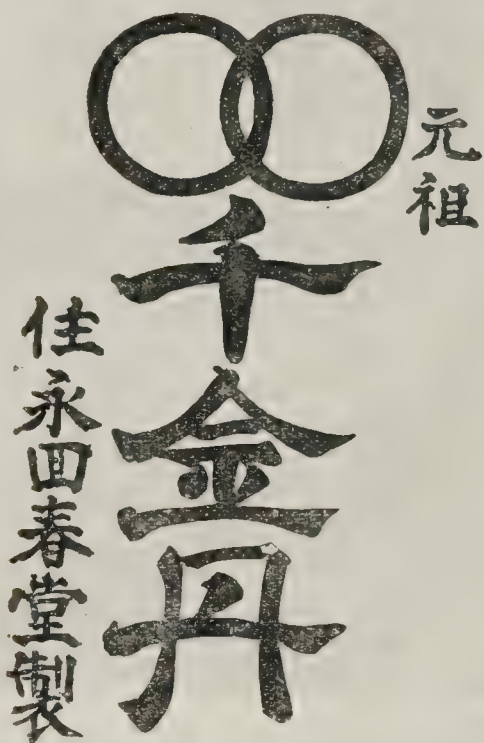 元祖
千金丹
佳永回春堂製